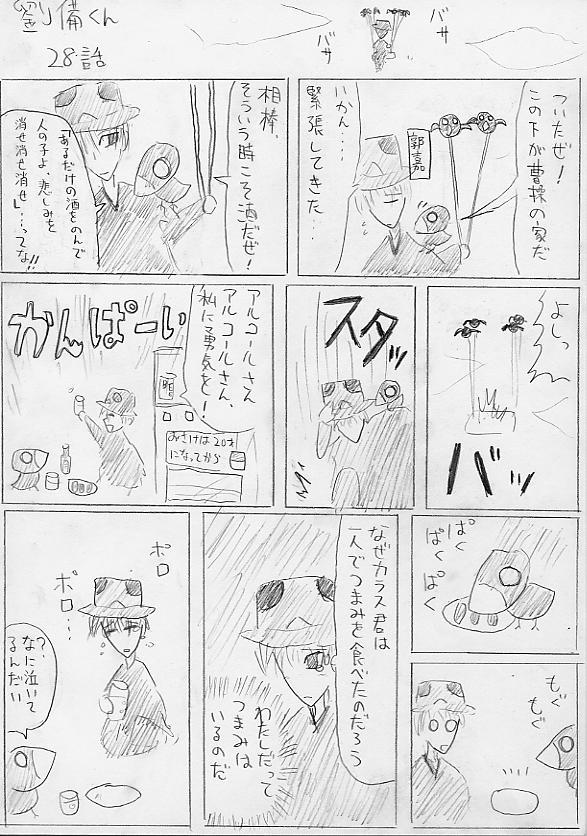 劉備くん
28話
バサ
バサ
ついたぜ！
この下が曹操の家だ
郭嘉
いかん…
緊張してきた…
相棒、
そういう時こそ酒だぜ！
「あるだけの酒をのんで
人の子よ、悲しみを
消せ消せ消せ」…ってな!!
よしっ
バッ
スタッ
アルコールさん
アルコールさん、
私に勇気を！
おさけは20才
になってから
かんぱーい
ぱく
ぱく
ぱく
もぐ
もぐ
なぜカラス君は
一人でつまみを食べたのだろう
わたしだって
つまみは
いるのだ
ポロ
ポロ…
？、
なに泣いて
るんだい